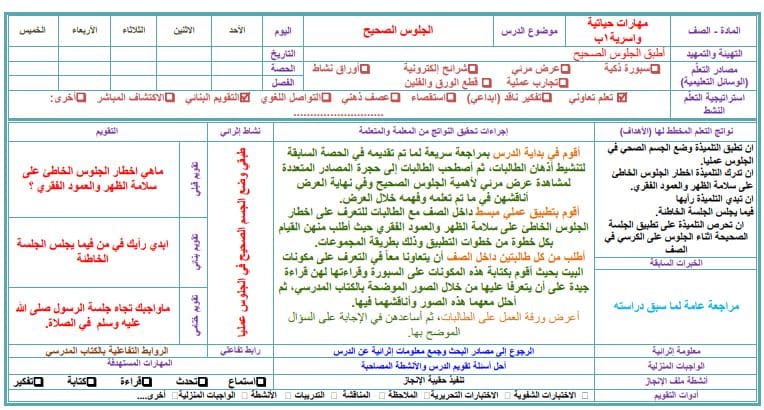 المادة - الصف
مهارات حياتية
واسرية1ب
موضوع الدرس
الجلوس الصحيح
اليوم
الأحد
الاثنين
الثلاثاء
الأربعاء
الخميس
التهيئة والتمهيد
أطبق الجلوس الصحيح
التاريخ
مصادر التعلم
(الوسائل التعليمية)
سبورة ذكية
عرض مرئي
شرائح إلكترونية
أوراق نشاط
تجارب عملية
قطع الورق والفلين
الحصة
الفصل
استراتيجية التعلم
النشط
تعلم تعاوني
تفكير ناقد (ابداعي)
استقصاء
عصف ذهني
التواصل اللغوي
التقويم البنائي
الاكتشاف المباشر
أخرى:
............................
نواتج التعلم المخطط لها (الأهداف)
إجراءات تحقيق النواتج من المعلمة والمتعلمة
نشاط إثرائي
التقويم
ان تطبق التلميذة وضع الجسم الصحي في
الجلوس عمليا.
ان تدرك التلميذة اخطار الجلوس الخاطئ
على سلامة الظهر والعمود الفقري.
ان تبدي التلميذة رأيها
فيما يجلس الجلسة الخاطنة.
ان تحرص التلميذة على تطبيق الجلسة
الصحيحة اثناء الجلوس على الكرسي في
الصف
الخبرات السابقة
مراجعة عامة لما سبق دراسته
أقوم في بداية الدرس بمراجعة سريعة لما تم تقديمه في الحصة السابقة
لتنشيط أذهان الطالبات، ثم أصطحب الطالبات إلى حجرة المصادر المتعددة
لمشاهدة عرض مرئي لأهمية الجلوس الصحيح وفي نهاية العرض
أناقشهن في ما تم تعلمه وفهمه خلال العرض.
أقوم بتطبيق عملي مبسط داخل الصف مع الطالبات للتعرف على اخطار
الجلوس الخاطئ على سلامة الظهر والعمود الفقري حيث أطلب منهن القيام
بكل خطوة من خطوات التطبيق وذلك بطريقة المجموعات.
أطلب من كل طالبتين داخل الصف أن يتعاونا معاً في التعرف على مكونات
البيت بحيث أقوم بكتابة هذه المكونات على السبورة وقراءتها لهن قراءة
جيدة على أن يتعرفا عليها من خلال الصور الموضحة بالكتاب المدرسي، ثم
أحلل معهما هذه الصور وأناقشهما فيها.
أعرض ورقة العمل على الطالبات، ثم أساعدهن في الإجابة على السؤال
الموضح بها.
طبقي وضع الجسم الصحيح في الجلوس عمليا
تقويم قبلي
ماهي اخطار الجلوس الخاطئ على
سلامة الظهر والعمود الفقري ؟
تقويم بنائي
ابدي رأيك في من فيما يجلس الجلسة
الخاطنة
تقويم ختامي
ماواجبك تجاه جلسة الرسول صلى الله
عليه وسلم في الصلاة.
معلومة إثرائية
الرجوع إلى مصادر البحث وجمع معلومات إثرائية عن الدرس
رابط تفاعلي
الروابط التفاعلية بالكتاب المدرسي
الواجبات المنزلية
أحل أسئلة تقويم الدرس والأنشطة المصاحبة
المهارات المستهدفة
أنشطة ملف الإنجاز
تنفيذ حقيبة الإنجاز
استماع
تحدث
قراءة
كتابة
تفكير
أدوات التقويم
الاختبارات الشفوية
الاختبارات التحريرية
الملاحظة
المناقشة
التدريبات
الأنشطة
الواجبات المنزلية
أخرى....